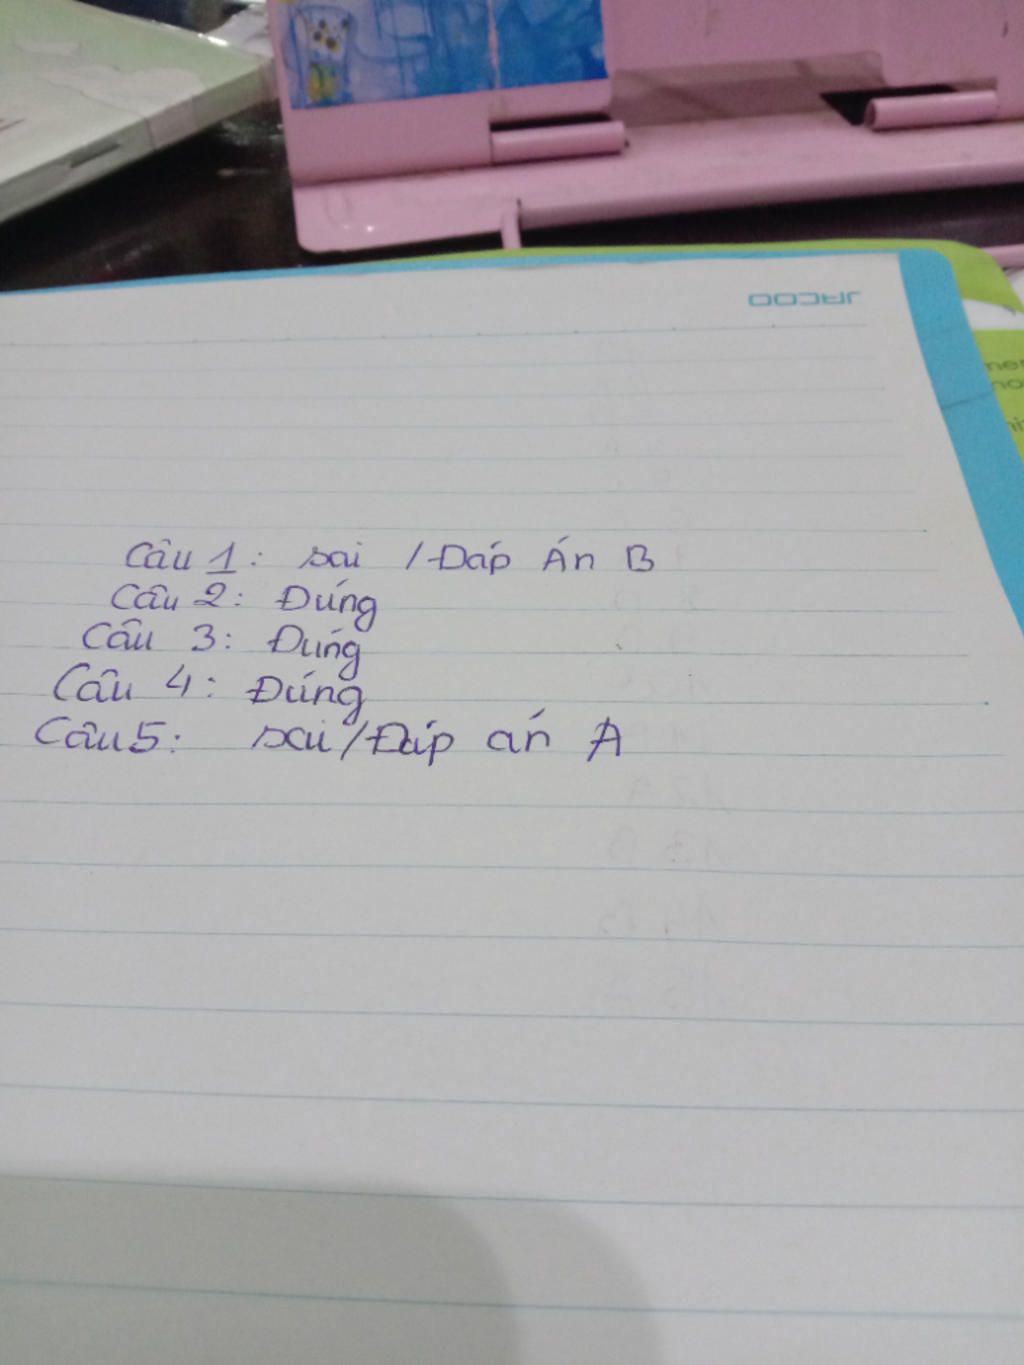 JACOO
Câu 1: sai / Đáp Án B
Câu 2: Đúng
Câu 3: Đúng
Câu 4: Đúng
Câu 5: sai / Đáp án A